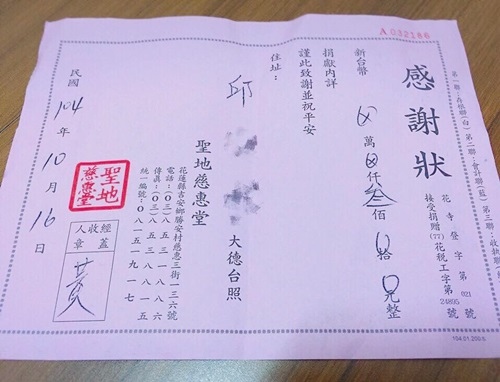 A 032186
第一聯：存根聯(白)第二聯：會計聯(藍)第三聯：收執聯
花寺登字第021號
接受捐贈(77)花稅工字第24895號
感謝狀
新台幣 萬 仟叁佰0拾0元整
捐獻內詳
謹此致謝並祝平安
住址：
邱 大德台照
聖地慈惠堂
花蓮縣吉安鄉勝安村慈惠三街一三六號
電話：(〇三)八五三八一八六
傳真：(〇三)八五三八八一五
統一編號：〇八一五一九一七
聖地慈惠堂
經收人蓋章
黃
民國104年10月16日